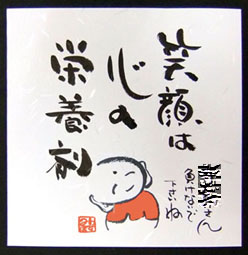 笑顔は
心の
栄養剤
さん
負けないで
下さいね